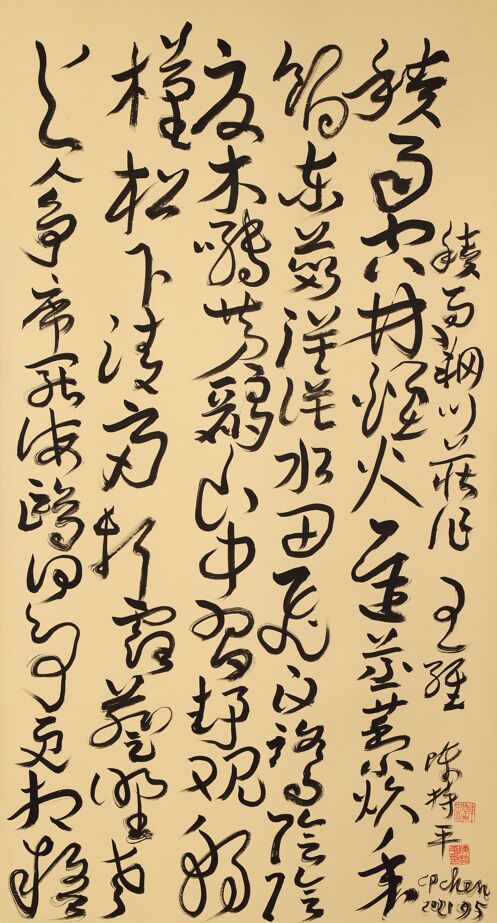 積雨輞川莊作 王維 陳持平
CPchen
2021.9.5
積雨空林煙火遲蒸藜炊黍
餉東菑漠漠水田飛白鷺陰陰
夏木囀黃鸝山中習靜觀朝
槿松下清齋折露葵野老
與人爭席罷海鷗何事更相疑